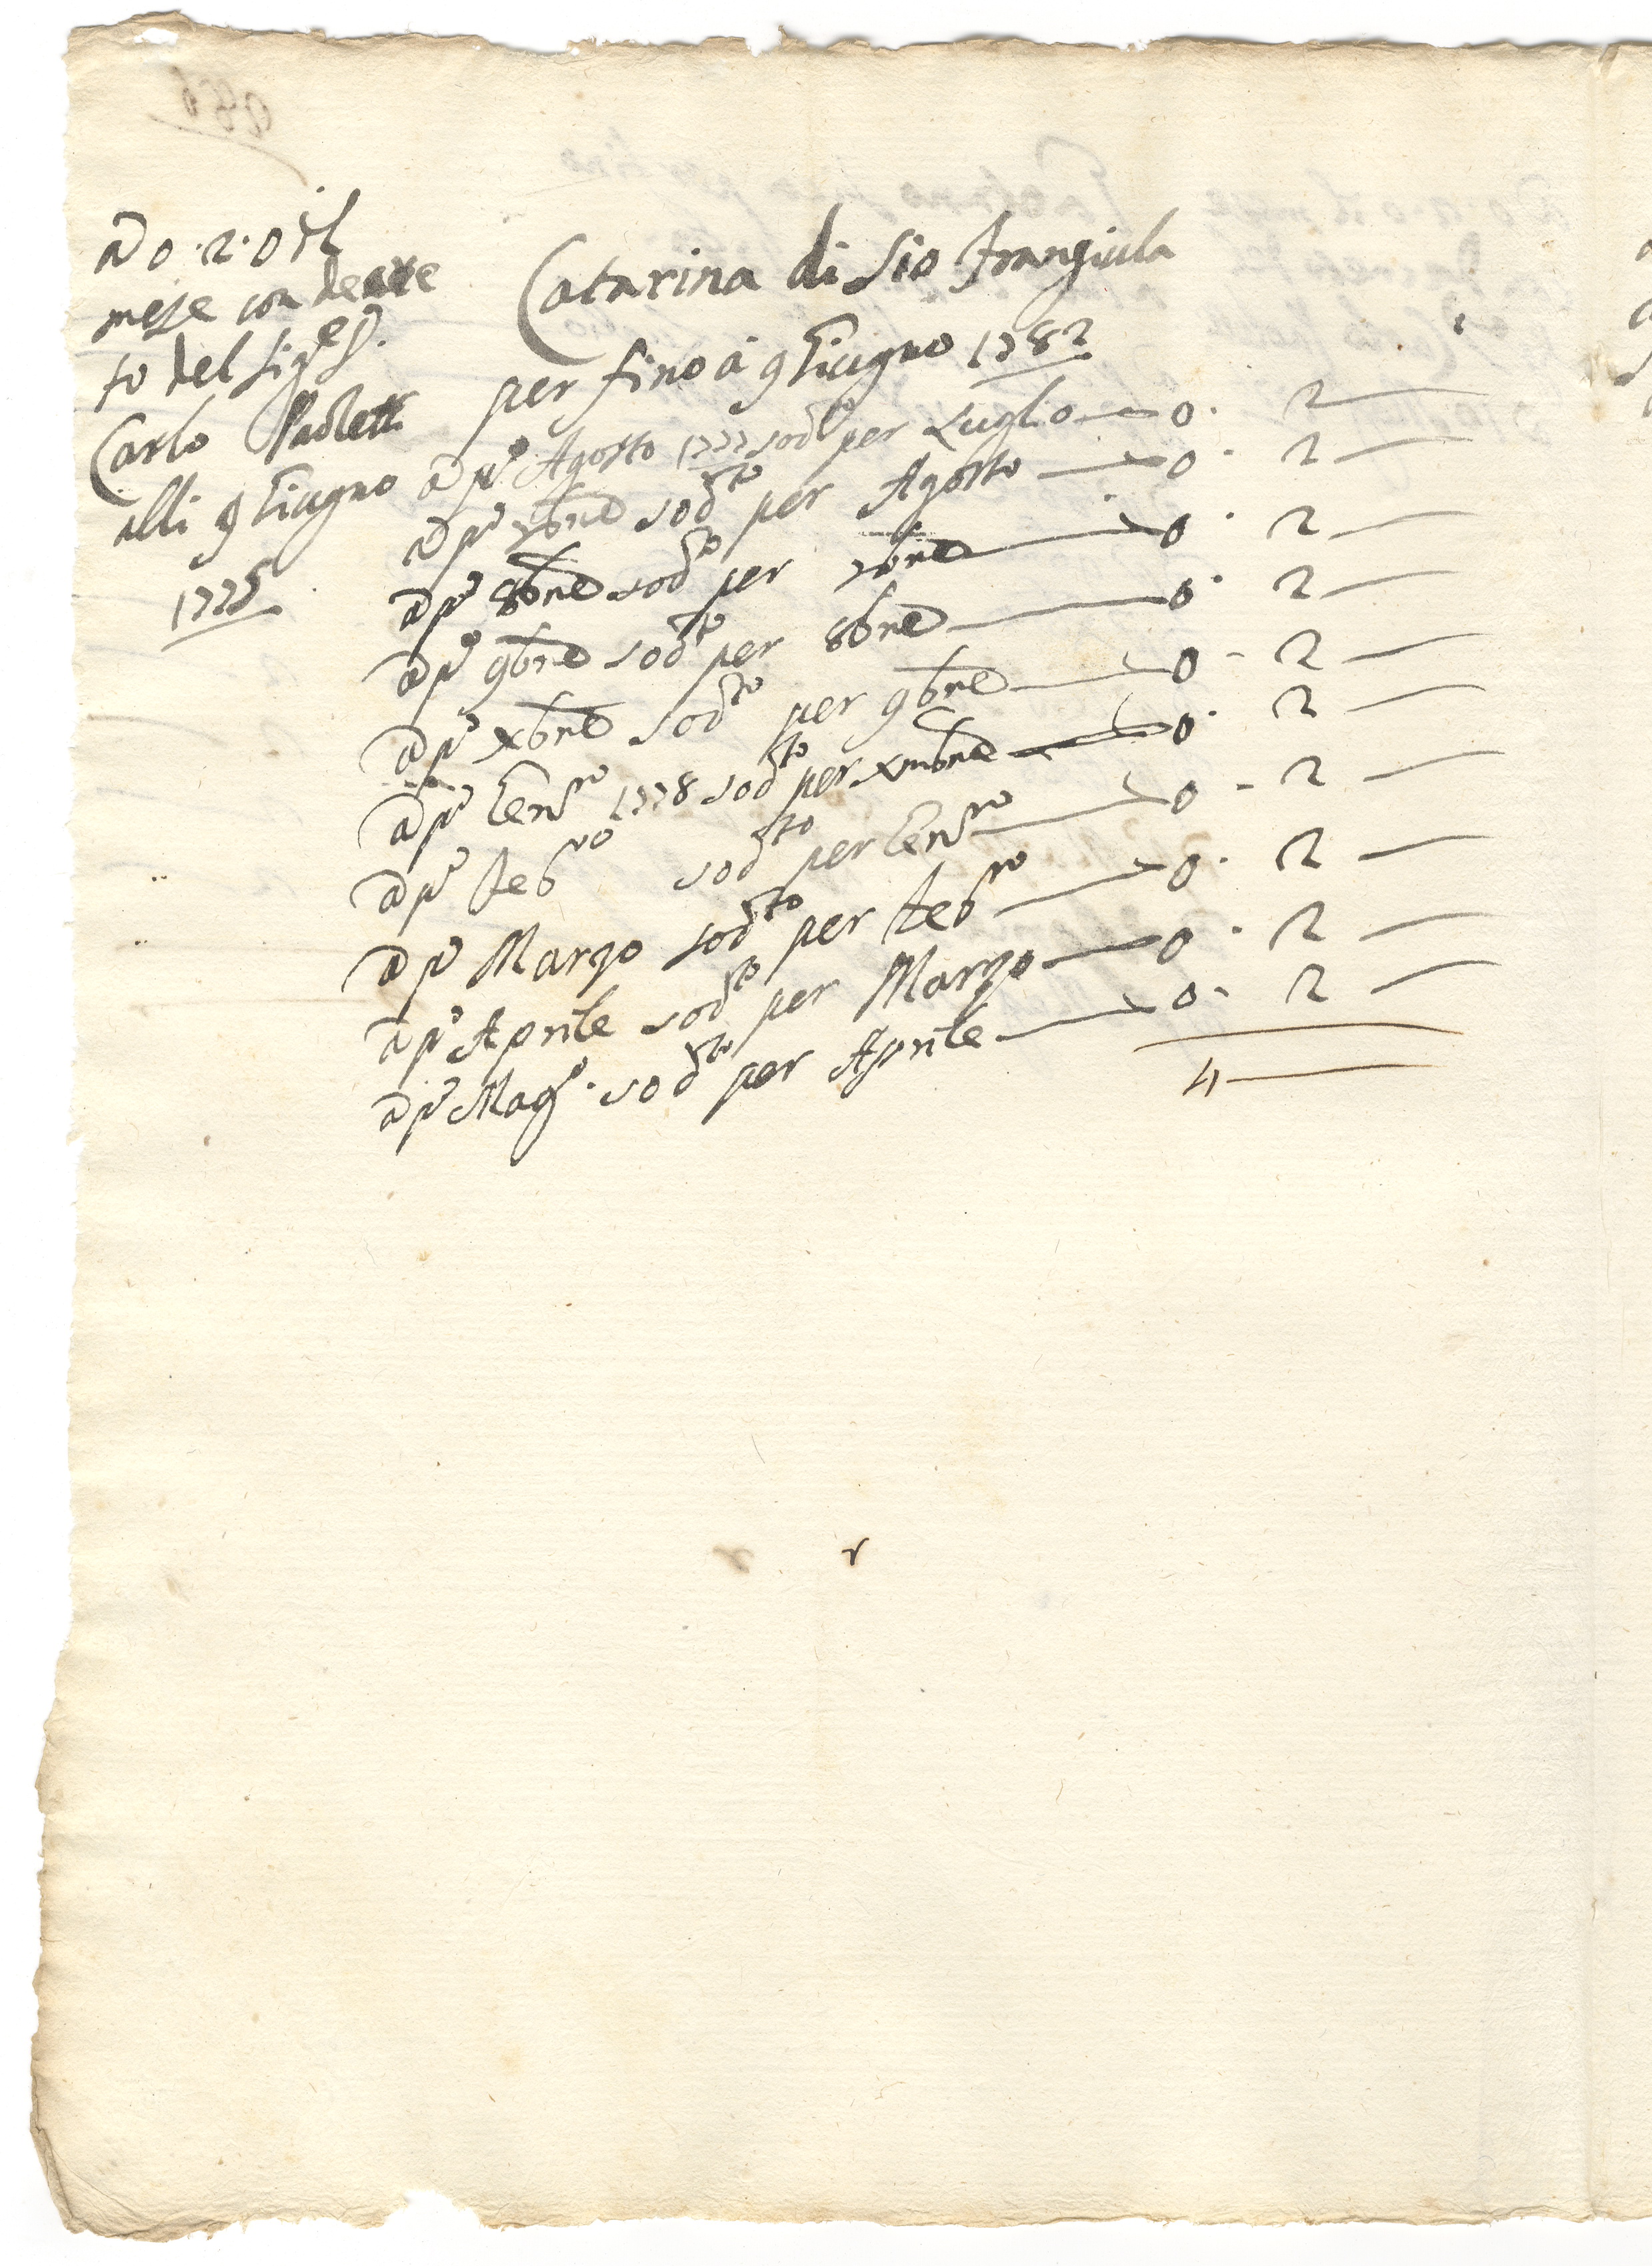 à 0.2.0 il
mese con decre
to del Sig.r
Carlo Paolett
alli 9 Giugno
1775
Catarina di Sio frangiula
per fino à 9 Giugno 1782
à p.o Agosto 1777 sod.to per Luglio — 0. 2 —
à p.o 7bre sod.to per Agosto — 0. 2 —
à p.o 8bre sod.to per 7bre — 0. 2 —
à p.o 9bre sod.to per 8bre — 0. 2 —
à p.o xbre sod.to per 9bre — 0 - 2 —
à p.o Gen.ro 1778 sod.to per xmbre — 0. 2 —
à p.o Feb.ro sod.to per Gen.ro — 0 - 2 —
à p.o Marzo sod.to per Feb.ro — 0. 2 —
à p.o Aprile sod.to per Marzo — 0. 2 —
à p.o Mag.o sod.to per Aprile — 0. 2 —
4 —